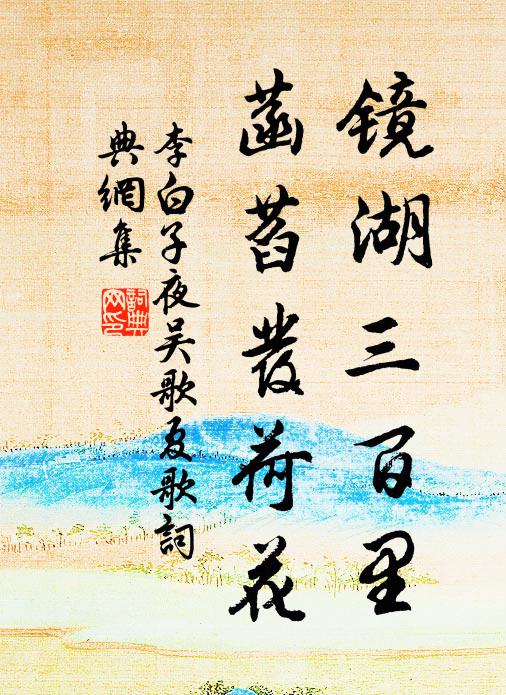 镜湖三百里
菡萏發荷花
李白子夜吴歌夏歌詞
典網集
詞典
网印